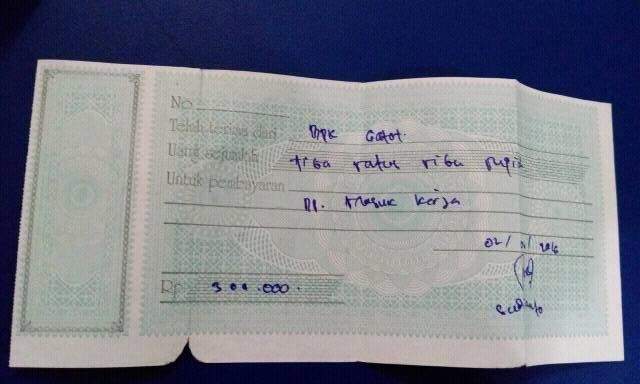 No
Telah terima dari Bpk Gatot.
Uang sejumlah tiga ratus ribu rupia
Untuk pembayaran Dp. Masuk kerja
Rp 300.000.